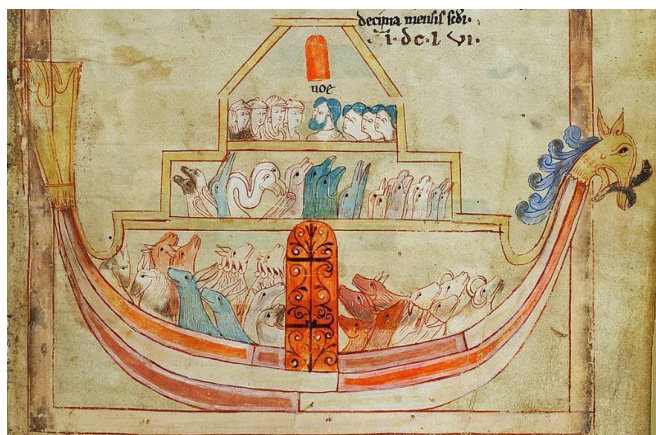 decima mensis s̄di.
.ī.dc.lvi.
noe